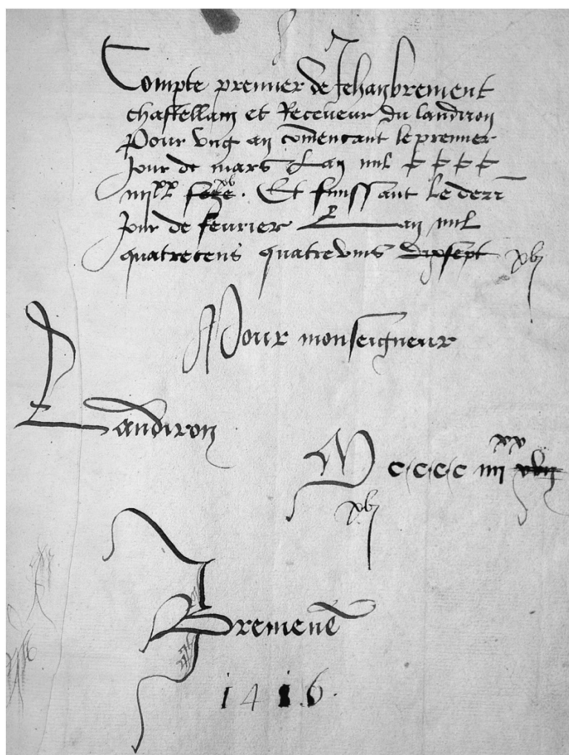 Compte premier de Jehan brement
chastellain et Receveur du landiron
Pour ung an comencant le premier
Jour de mars Lan mil
xv. Et finissant le derr
Jour de fevrier Lan mil
quatrecens quatrevins dixsept xvj
Pour monseigneur
Landiron
M cccc iiij xx xvij
xvj
J Bremene